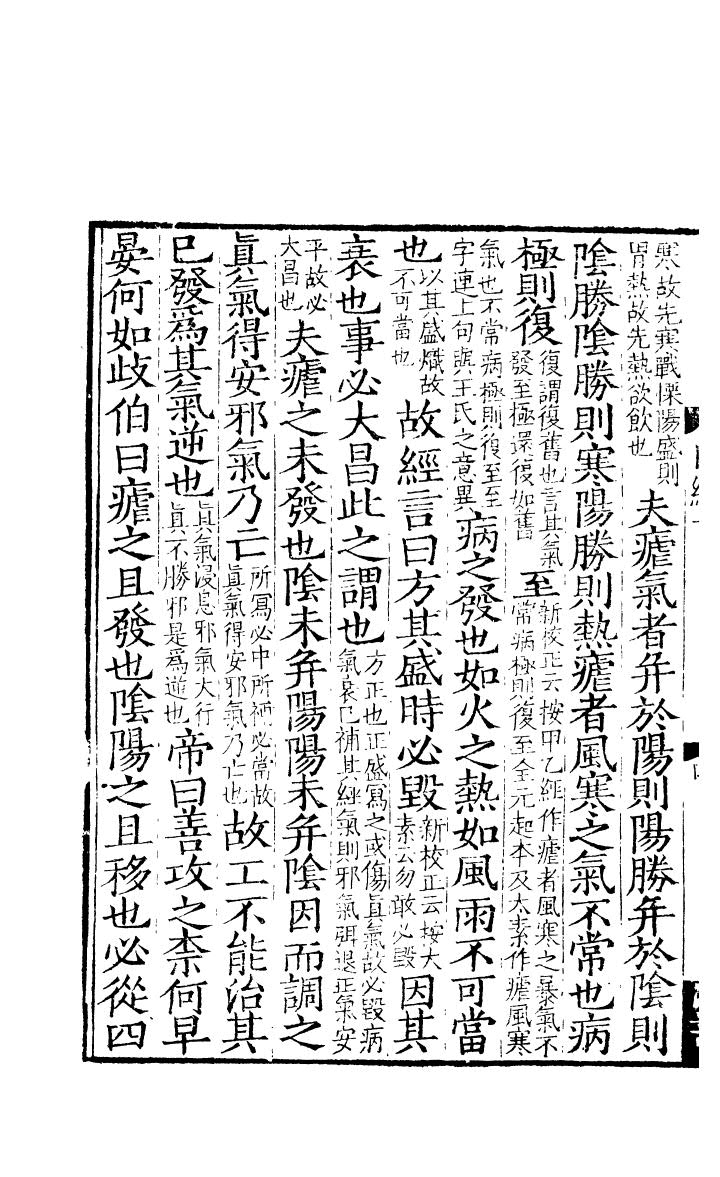 寒故先寒戰慄陽盛則
胃熱故先熱欲飲也
夫瘧氣者并於陽則陽勝并於陰則
陰勝陰勝則寒陽勝則熱瘧者風寒之氣不常也病
極則復
復謂復舊也言其氣
發至極還復如舊
至
新校正云按甲乙經作瘧者風寒之暴氣不
常病極則復至全元起本及太素作瘧風寒
氣也不常病極則復至至
字連上句與王氏之意異
病之發也如火之熱如風雨不可當
也
以其盛熾故
不可當也
故經言曰方其盛時必毀
新校正云按太
素云勿敢必毀
因其
衰也事必大昌此之謂也
方正也正盛寫之或傷眞氣故必毀病
氣衰已補其經氣則邪氣弭退正氣安
平故必
大昌也
夫瘧之未發也陰未并陽陽未并陰因而調之
眞氣得安邪氣乃亡
所寫必中所補必當故
眞氣得安邪氣乃亡也
故工不能治其
已發爲其氣逆也
眞氣浸息邪氣大行
眞不勝邪是爲逆也
帝曰善攻之柰何早
晏何如歧伯曰瘧之且發也陰陽之且移也必從四